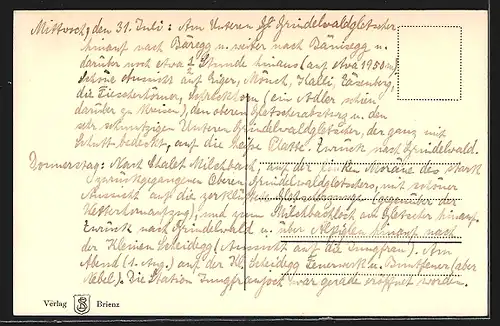 Mittwoch, den 31. Juli: Am Unteren Grindelwaldgletscher
hinauf nach Bäregg u. weiter nach Bänisegg u.
darüber noch etwa ½ Stunde hinaus (auf etwa 1950 m).
Schöne Aussicht auf Eiger, Mönch, Kalli, Zäsenberg,
die Fiescherhörner, Schreckhorn (ein Adler schien
darüber zu kreisen), den oberen Gletscherabsturz u. den
sehr schmutzigen Unteren Grindelwaldgletscher, der ganz mit
Schutt bedeckt, auf die heiße Platte. Zurück nach Grindelwald.
Donnerstag: Nach Chalet Milchbach, auf der linken Moräne des stark
zurückgegangenen Oberen Grindelwaldgletschers, mit schöner
Aussicht auf die zerklüfteten (gegenüber der
Wetterhornaufzug), und zum Milchbachloch am Gletscher hinauf.
Zurück nach Grindelwald u. über Alpiglen hinauf nach
der Kleinen Scheidegg (Aussicht auf die Jungfrau). Am
Abend (1. Aug.) auf der Kl. Scheidegg Feuerwerk u. Buntfeuer (aber
Nebel). Die Station Jungfraujoch war gerade eröffnet worden.
Verlag Brienz